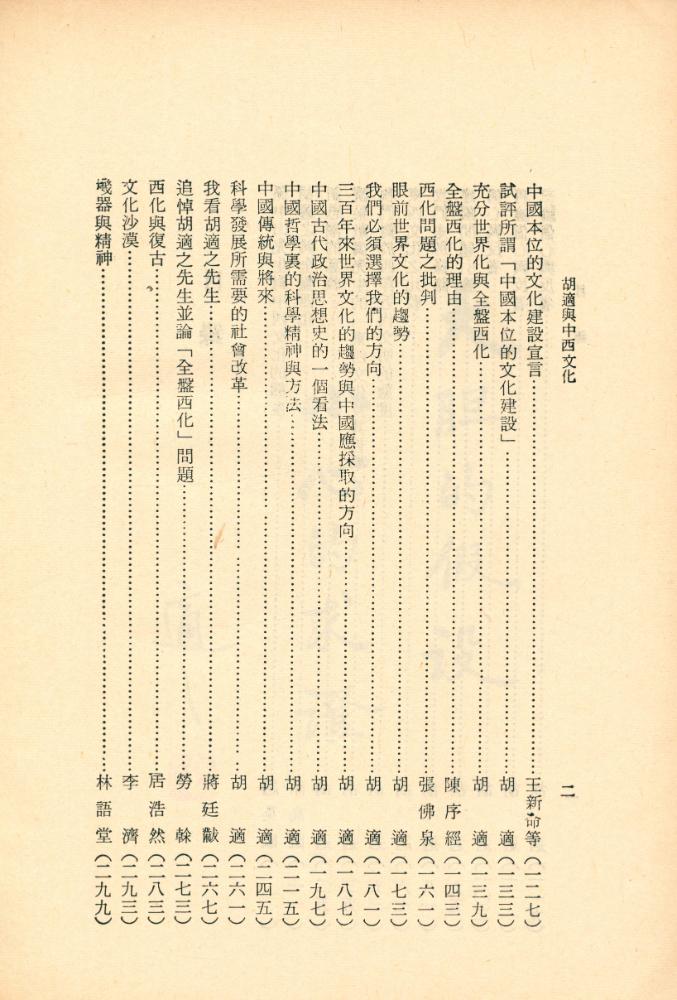 胡適與中西文化
二
中國本位的文化建設宣言……王新命等(一二七)
試評所謂「中國本位的文化建設」……胡適(一三三)
充分世界化與全盤西化……胡適(一三九)
全盤西化的理由……陳序經(一四三)
西化問題之批判……張佛泉(一六一)
眼前世界文化的趨勢……胡適(一七三)
我們必須選擇我們的方向……胡適(一八一)
三百年來世界文化的趨勢與中國應採取的方向……胡適(一八七)
中國古代政治思想史的一個看法……胡適(一九七)
中國哲學裏的科學精神與方法……胡適(二一五)
中國傳統與將來……胡適(二四五)
科學發展所需要的社會改革……胡適(二六一)
我看胡適之先生……蔣廷黻(二六七)
追悼胡適之先生並論「全盤西化」問題……勞榦(二七三)
西化與復古……居浩然(二八三)
文化沙漠……李濟(二九三)
機器與精神……林語堂(二九九)